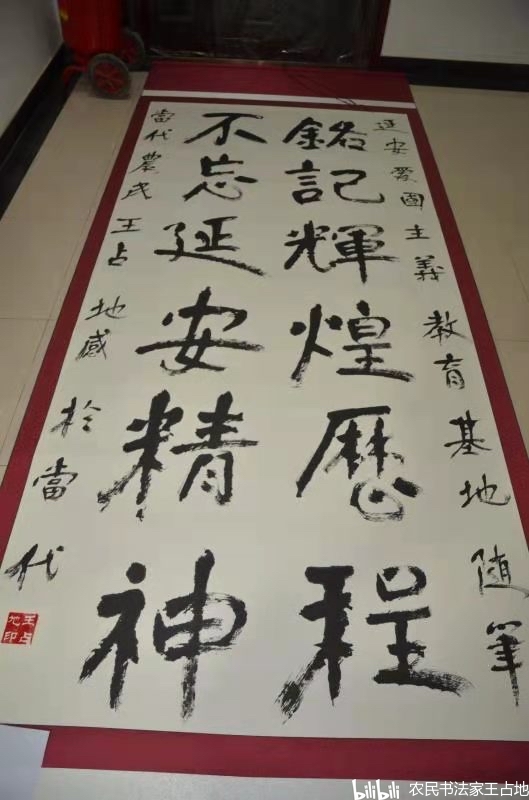 延安爱國主義教育基地随笔
銘記輝煌歷程
不忘延安精神
當代農民王占地感於當代
王占地印
bilibili 农民书法家王占地